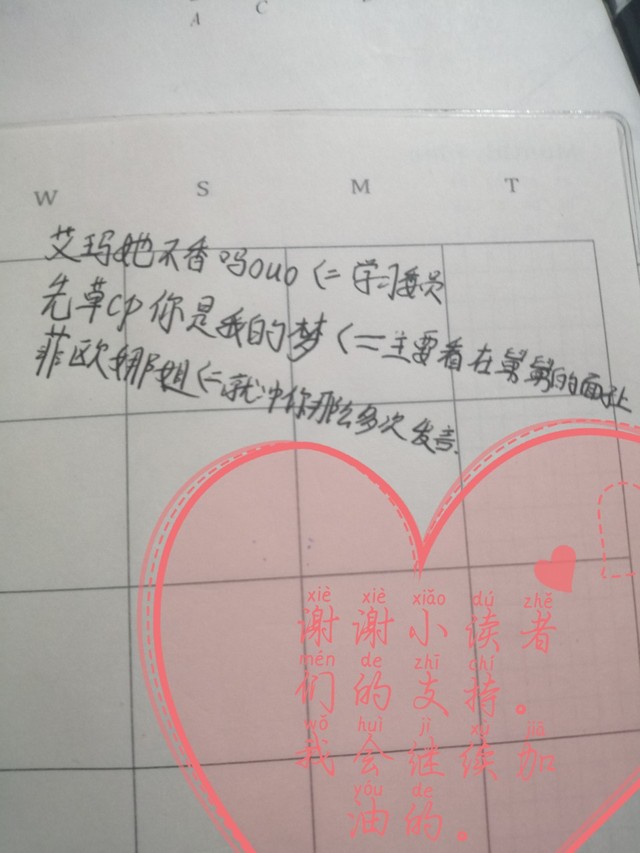 A C
W S M T
艾玛她不香吗ouo <= 学习委员
先草cp 你是我的梦 <= 主要看在舅舅的面子上
菲欧娜姐 <= 就冲你那么多次发言.
xiè xiè xiǎo dú zhě
谢谢小读者
mén de zhī chí
们的支持。
wǒ huì jì xù jiā
我会继续加
yóu de
油的。